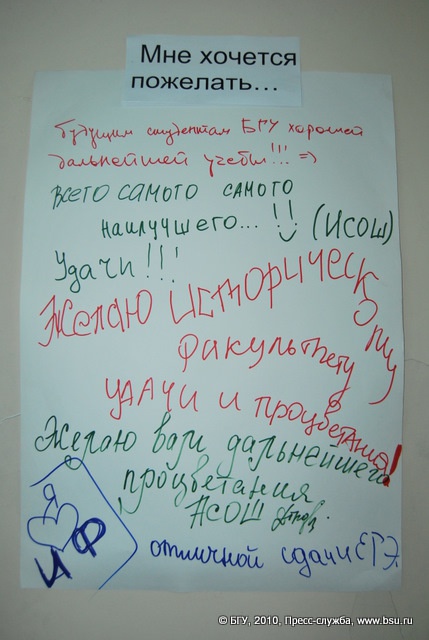 Мне хочется
пожелать...
будущим студентам БГУ хорошей
дальнейшей учебы!!! =)
всего самого самого
наилучшего... !! (ИСОШ)
Удачи!!!
Желаю историческому
факультету
удачи и процветания!
Желаю вам дальнейшего
процветания
АСОШ
Я
ИФ
отличной сдачи ЕГЭ
© БГУ, 2010, Пресс-служба, www.bsu.ru